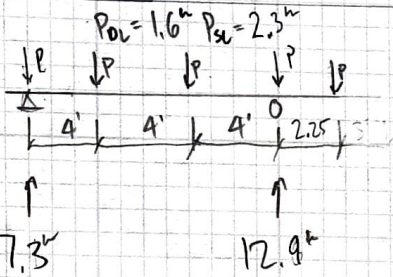 P_DL = 1.6ᵏ P_SL = 2.3ᵏ
P P P P P
4' 4' 4' 2.25
7.3ᵏ 12.9ᵏ